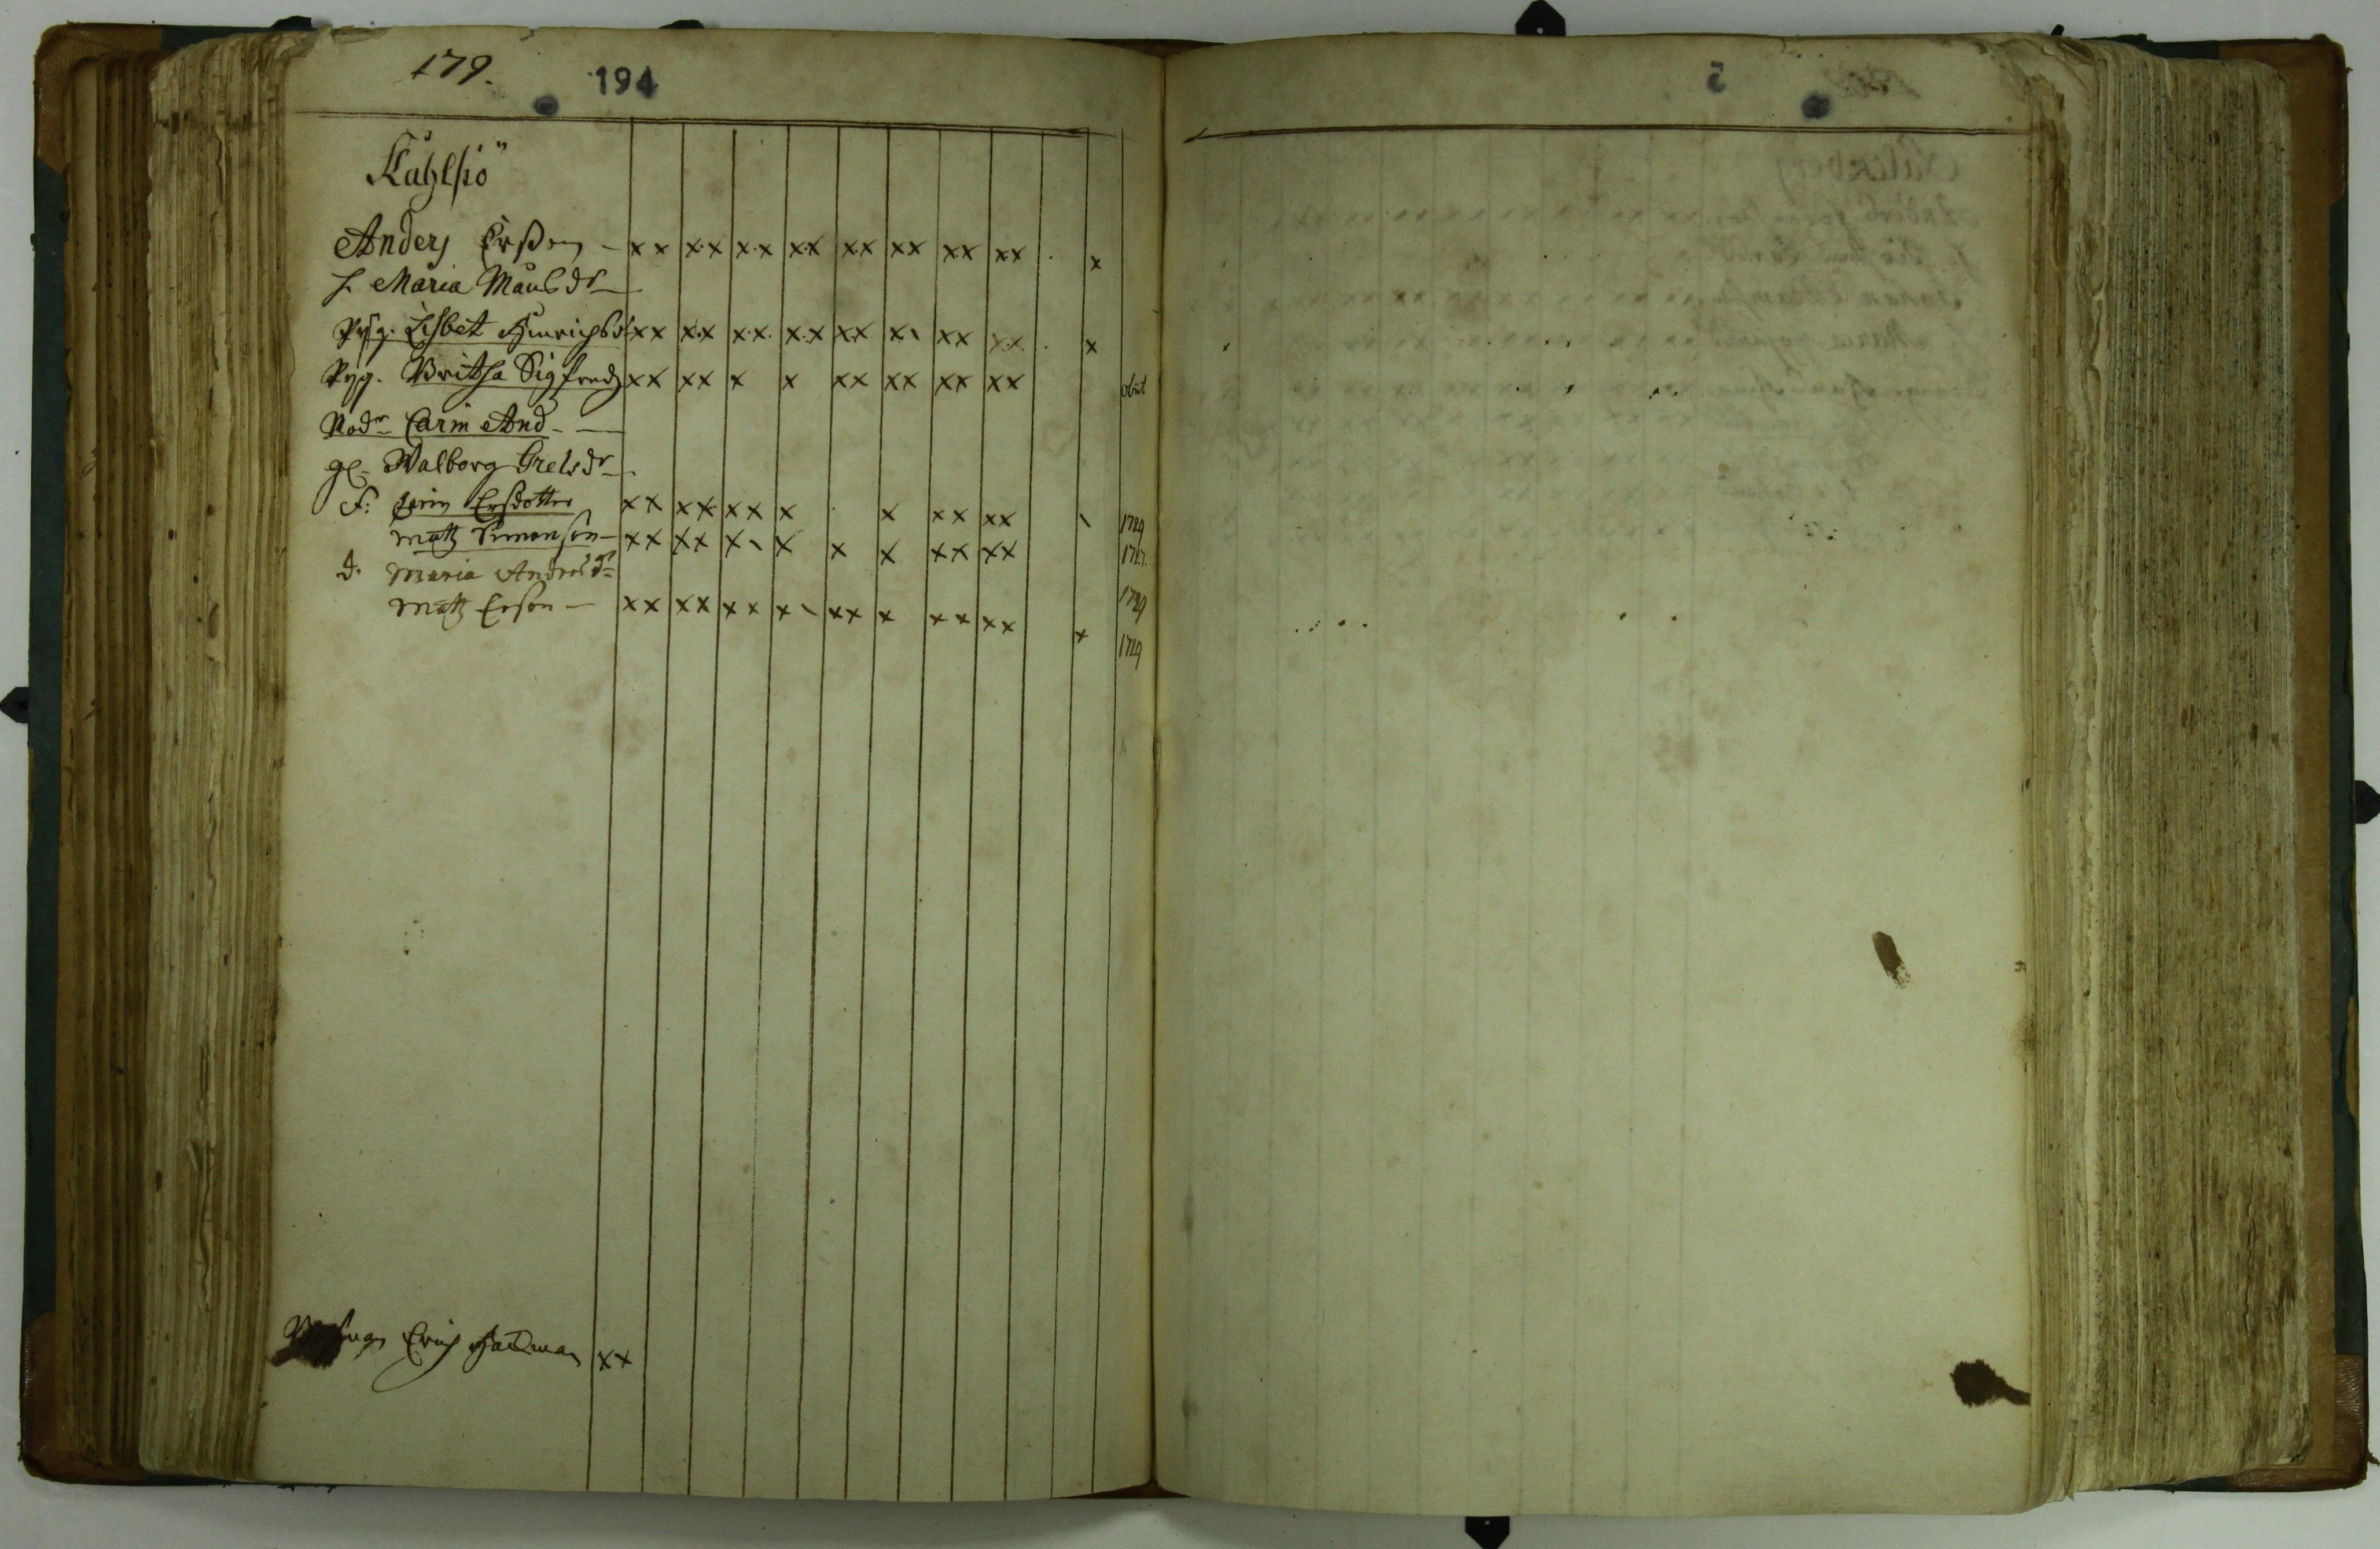 179. 194
Kåhlsiö
Anders Erßon — xx xx xx xx xx xx xx xx . x
h. Maria Mausdr
Pyg. Lisbet Hinrichsd xx xx xx. xx xx x\ xx xx . x
Pyg. Britha Sigfredz xx xx x x xx xx xx xx obiit
Nodr Carin And
gl. Walborg Grelsdr
F: Carin Ersdotter xx xx xx x . x xx xx \ 1729
Matz Simonson — xx xx x\ x x x xx xx 1727.
d. Maria Andersdr 1729
Matz Erson — xx xx xx x\ xx x xx xx x 1729
Erich xx